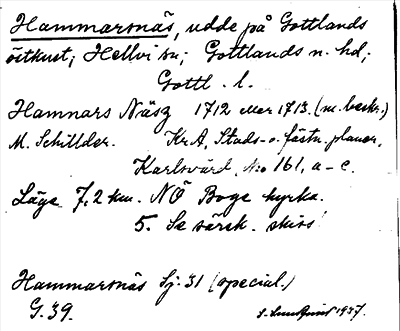 Hammarsnäs, udde på Gottlands
östkust; Hellvi sn; Gottlands n. hd;
Gottl. l.
Hamnars Näsz 1712 eller 1713. (m. beskr.)
M. Schillder. KrA, Stads- o. fästn. planer,
Karlsvärd, No 161, a-c.
Läge 7,2 km. NÖ Boge kyrka.
5. Se särsk. skiss!
Hammarsnäs Sj. 31 (special.)
G. 39.
S. Lundqvist 1937.